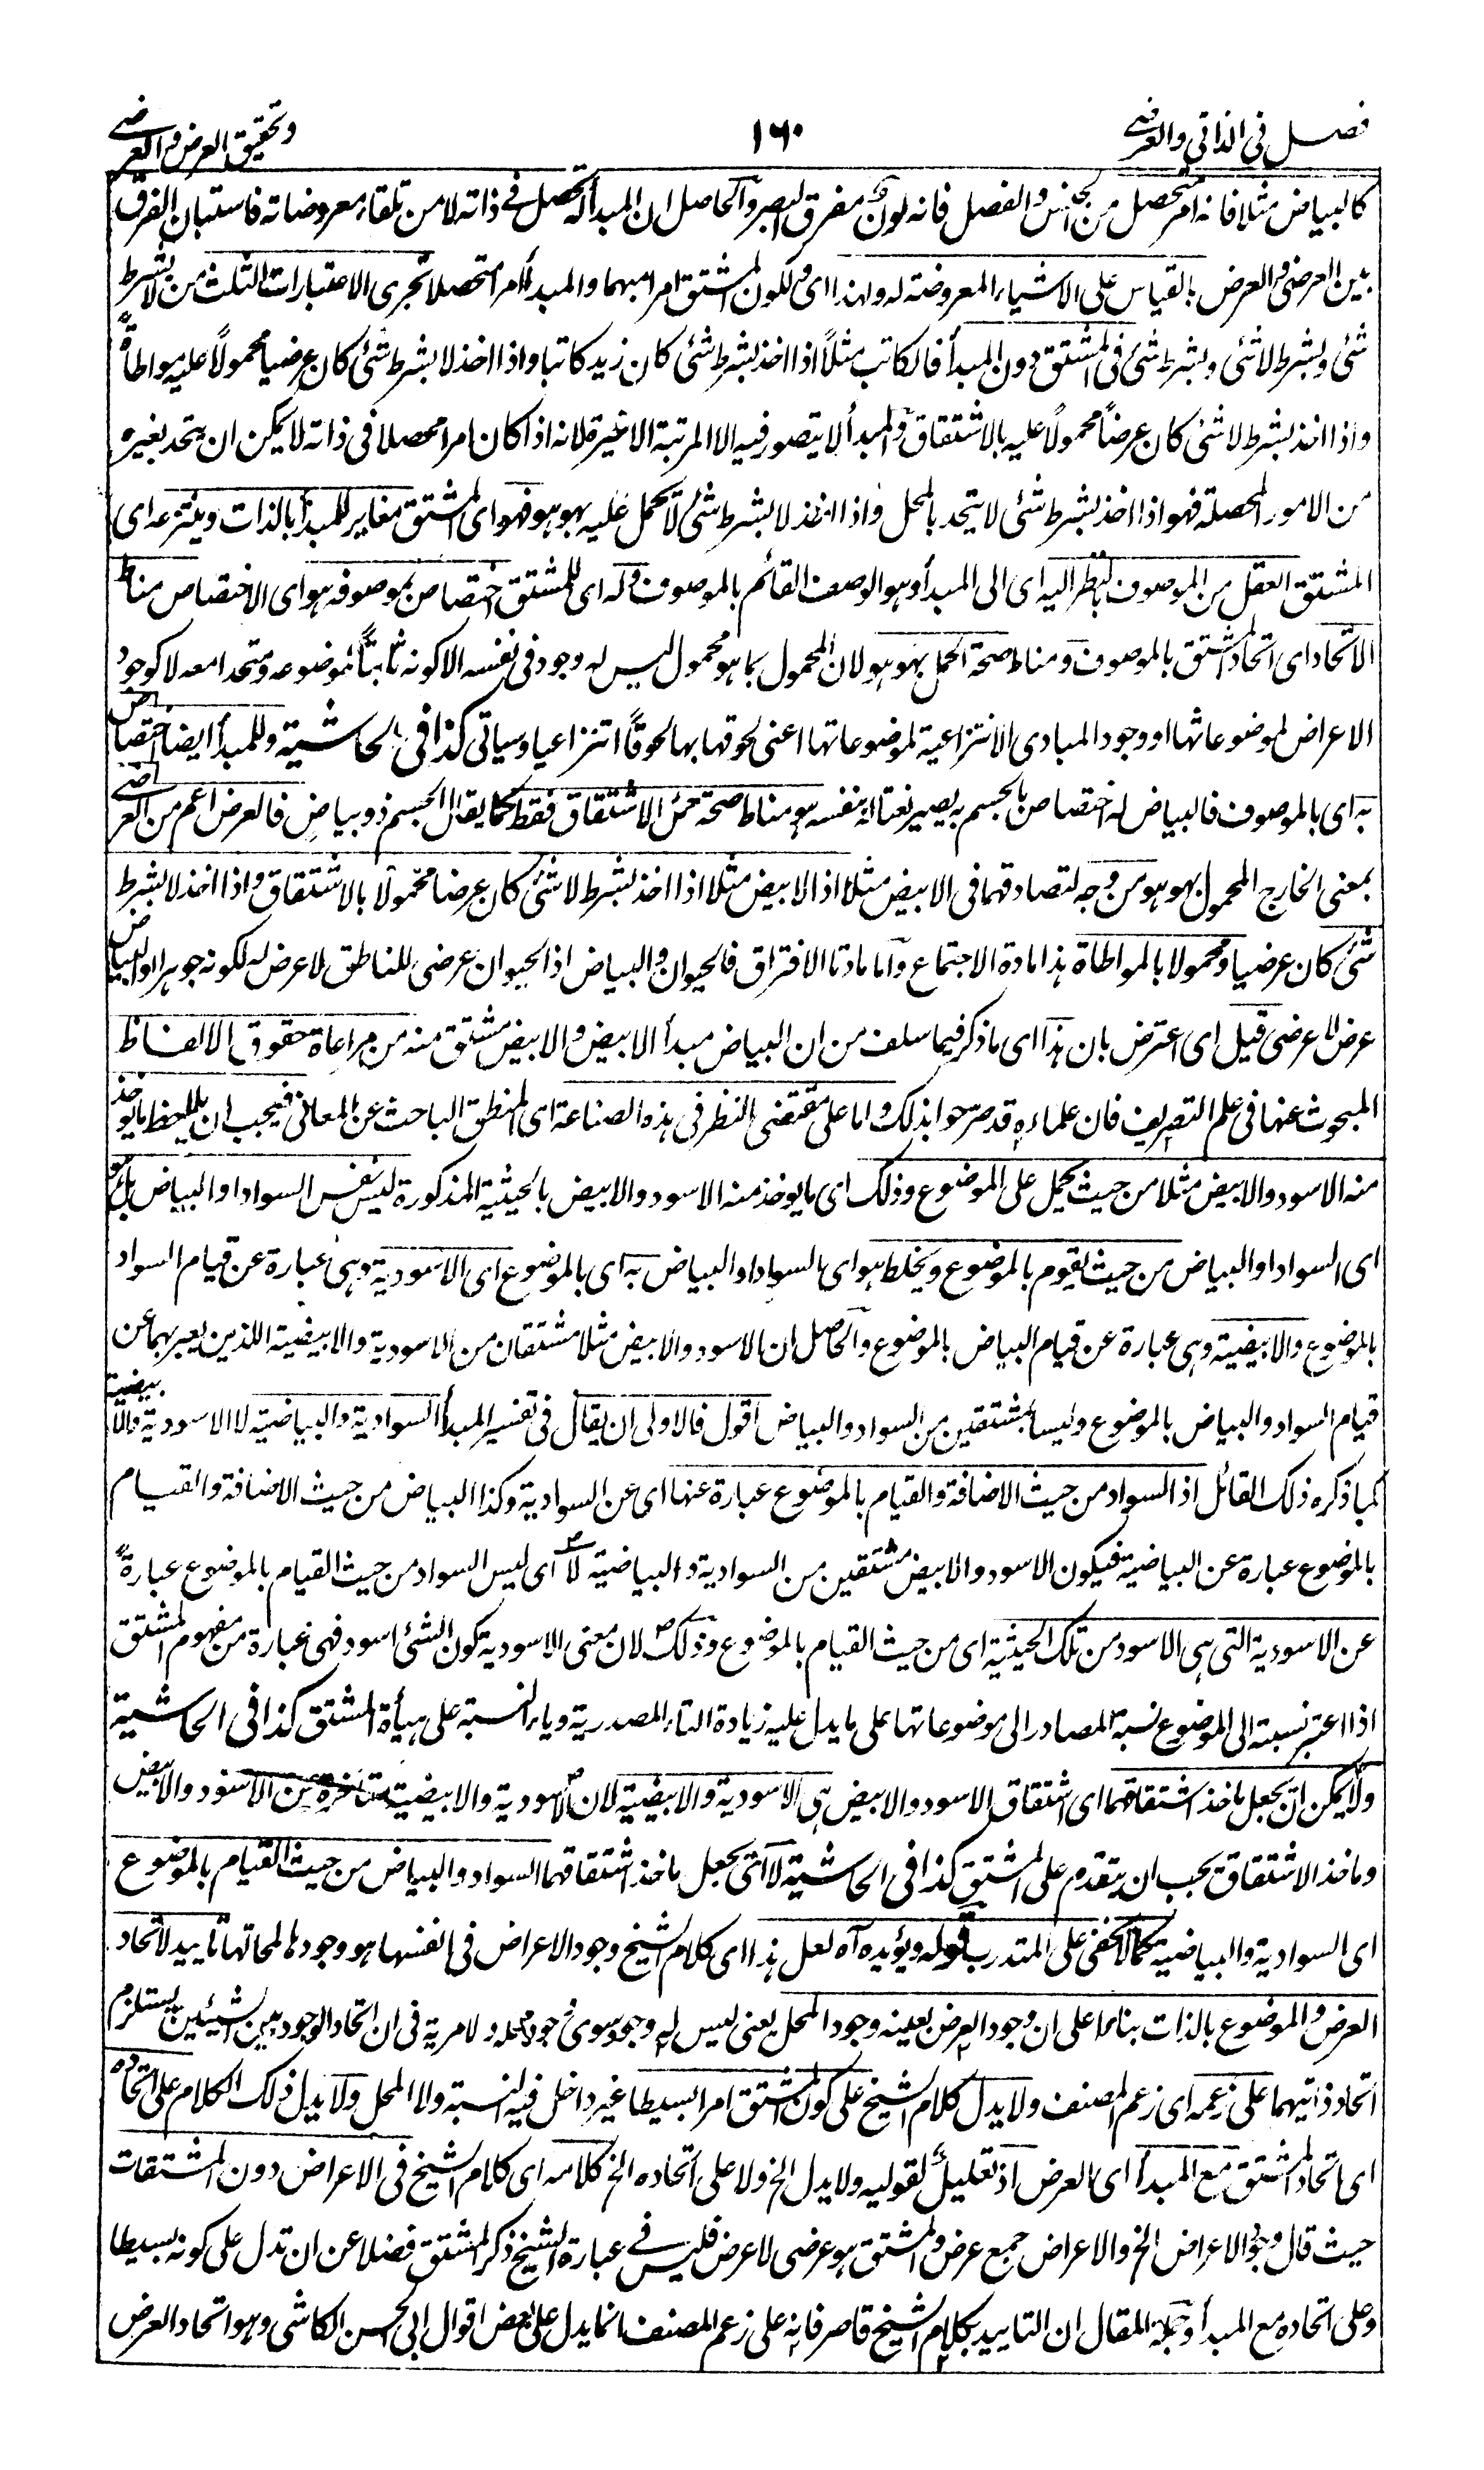 فصل فى الذاتى والعرضى
١٦٠
وتحقيق العرض والعرضى
كالبياض مثلا فانه امر متحصل من الجنس والفصل فانه لون مفرق البصر والحاصل ان المبدأ له تحصل فى ذاته لا من تلقاء معروضاته فاستبان الفرق
بين العرضى والعرض بالقياس على الاشياء المعروضة له ولهذا اى ولكون المشتق امرا مبهما والمبدأ امرا متحصلا تجرى الاعتبارات الثلث من لا بشرط
شئ وبشرط لا شئ وبشرط شئ فى المشتق دون المبدأ فالكاتب مثلاً اذا اخذ بشرط شئ كان زيد كاتبا واذا اخذ لا بشرط شئ كان عرضيا محمولاً عليه مواطاةً
واذا اخذ بشرط لا شئ كان عرضاً محمولاً عليه بالاشتقاق والمبدأ لا يتصور فيه الا المرتبة الاخيرة لانه اذا كان امرا محصلا فى ذاته لا يمكن ان يتحد بغيره
من الامور المحصلة فهو اذا اخذ بشرط شئى لا يتحد بالمحل واذا اخذ لا بشرط شئ لا يحمل عليه بهو هو فهو اى المشتق مغاير للمبدأ بالذات وينتزعه اى
المشتق العقل من الموصوف بالنظر اليه اى الى المبدأ وهو الوصف القائم بالموصوف وله اى للمشتق اختصاص بموصوفه هو اى الاختصاص مناط
الاتحاد اى اتحاد المشتق بالموصوف ومناط صحة الحمل بهو هو لان المحمول بما هو محمول ليس له وجود فى نفسه الا كونه ثابتاً لموضوعه ومتحدا معه لا كوجود
الاعراض لموضوعاتها او وجود المبادى الانتزاعية لموضوعاتها اعنى لحوقها بها لحوقاً انتزاعيا وسياتى كذا فى الحاشية وللمبدأ ايضا اختصاص
به اى بالموصوف فالبياض له اختصاص بالجسم به يصير نعتا له بنفسه هو مناط صحة حمل الاشتقاق فقط كما يقال الجسم ذو بياض فالعرض اعم من العرضى
بمعنى الخارج المحمول بهو هو من وجه لتصادقهما فى الابيض مثلاً اذ الابيض مثلا اذا اخذ بشرط لا شئ كان عرضا محمولا بالاشتقاق واذا اخذ لا بشرط
شئ كان عرضيا ومحمولا بالمواطاة هذا مادة الاجتماع واما مادتا الافتراق فالحيوان والبياض اذ الحيوان عرضى للناطق لا عرض له لكونه جوهرا والبياض
عرض لا عرضى قيل اى اعترض بان هذا اى ما ذكر فيما سلف من ان البياض مبدأ الابيض والابيض مشتق منه من مراعاة حقوق الالفاظ
المبحوث عنها فى علم التصريف فان علماءه قد صرحوا بذلك واما على مقتضى النظر فى هذه الصناعة اى المنطق الباحث عن المعانى فيجب ان يلاحظ ما يوخذ
منه الاسود والابيض مثلا من حيث يحمل على الموضوع وذلك اى ما يوخذ منه الاسود والابيض بالحيثية المذكورة ليس نفس السواد او البياض بل هو
اى السواد او البياض من حيث يقوم بالموضوع ويخلط هو اى السواد او البياض به اى بالموضوع اى الاسودية وهى عبارة عن قيام السواد
بالموضوع والابيضية وهى عبارة عن قيام البياض بالموضوع والحاصل ان الاسود والابيض مثلا مشتقان من الاسودية والابيضية اللذين يعبر بهما عن
قيام السواد والبياض بالموضوع وليسا بمشتقين من السواد والبياض اقول فالاولى ان يقال فى تفسير المبدأ السوادية والبياضية لا الاسودية والابيضية
كما ذكره ذلك القائل اذ السواد من حيث الاضافة والقيام بالموضوع عبارة عنها اى عن السوادية وكذا البياض من حيث الاضافة والقيام
بالموضوع عبارة عن البياضية فيكون الاسود والابيض مشتقين من السوادية والبياضية لا اى ليس السواد من حيث القيام بالموضوع عبارةً
عن الاسودية التى هى الاسود من تلك الحيثية اى من حيث القيام بالموضوع وذلك لان معنى الاسودية كون الشئ اسود فهى عبارة من مفهوم المشتق
اذا اعتبر نسبته الى الموضوع نسبة المصادر الى موضوعاتها على ما يدل عليه زيادة التاء المصدرية وياء النسبة على هيأة المشتق كذا فى الحاشية
ولا يمكن ان يجعل ماخذ اشتقاقهما اى اشتقاق الاسود والابيض هى الاسودية والابيضية لان الاسودية والابيضية متاخرة عن الاسود والابيض
وماخذ الاشتقاق يجب ان يتقدم على المشتق كذا فى الحاشية لا اى يجعل ماخذ اشتقاقهما السواد والبياض من حيث القيام بالموضوع
اى السوادية والبياضية كما لا يخفى على المتدرب قوله ويؤيده اه لعل هذا اى كلام الشيخ وجود الاعراض فى انفسها هو وجودها لمحالها تاييد لاتحاد
العرض والموضوع بالذات بناءا على ان وجود العرض بعينه وجود المحل يعنى ليس له وجود سوى وجود محله ولا مرية فى ان اتحاد الوجود بين الشيئين يستلزم
اتحاد ذاتيهما على زعمه اى زعم المصنف ولا يدل كلام الشيخ على كون المشتق امرا بسيطا غير داخل فيه النسبة ولا المحل ولا يدل ذلك الكلام على اتحاده
اى اتحاد المشتق مع المبدأ اى العرض اذ تعليلٌ لقوليه ولا يدل الخ ولا على اتحاده الخ كلامه اى كلام الشيخ فى الاعراض دون المشتقات
حيث قال وجود الاعراض الخ والاعراض جمع عرض والمشتق هو عرضى لا عرض فليس فى عبارة الشيخ ذكر المشتق فضلا عن ان تدل على كونه بسيطا
وعلى اتحاده مع المبدأ وجملة المقال ان التاييد بكلام الشيخ قاصر فانه على زعم المصنف انما يدل على بعض اقوال ابى الحسن الكاشى وهو اتحاد العرض